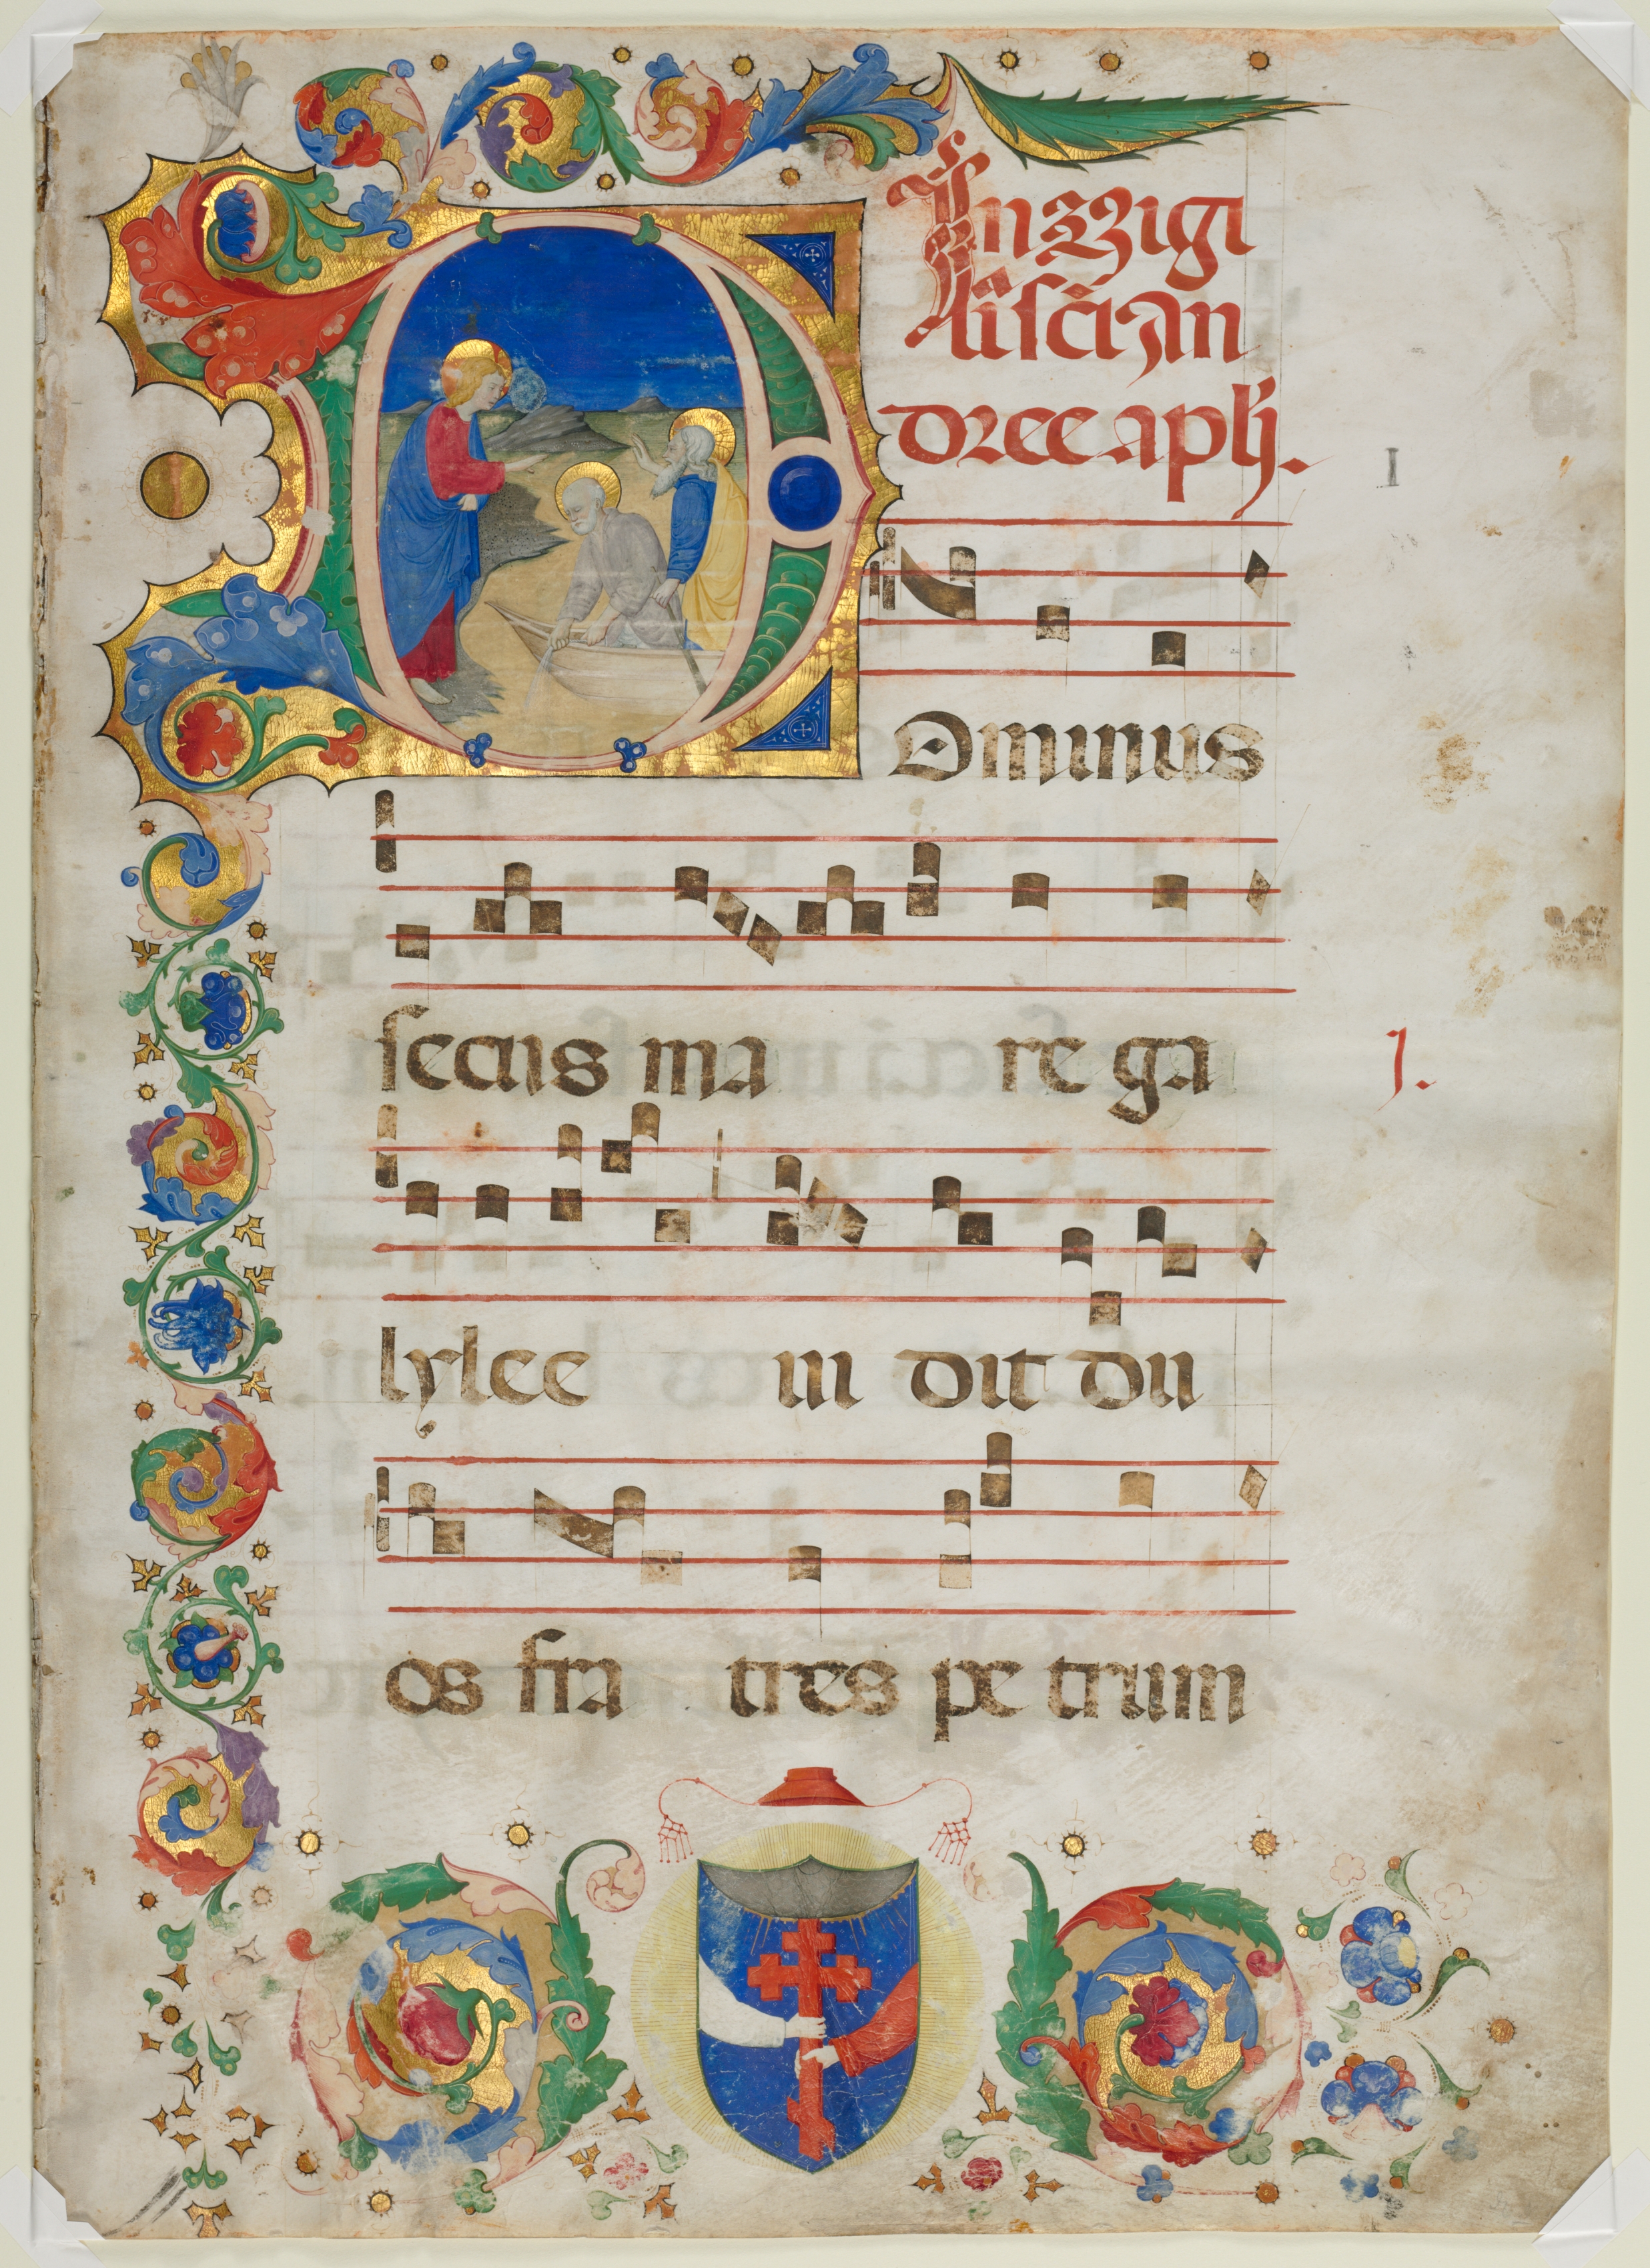 In vigi
lia sci an
dree apli.
I
Dominus
secus ma re ga
1.
lylee ui dit du
os fra tres pe trum